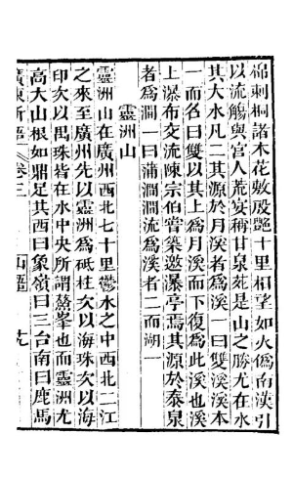 棉刺桐諸木花敷殷艷十里相望如火僞南漢引
以流觴與宮人荒宴稱甘泉苑是山之勝尤在水
其大水凡二其源於月溪者爲溪一曰雙溪溪本
一而名曰雙以其上爲月溪而下復爲此溪也溪
上瀑布交流陳宗伯嘗築邀瀑亭焉其源於泰泉
者爲澗一曰蒲澗澗流爲溪者二而湖一
靈洲山
靈洲山在廣州西北七十里鬱水之中西北二江
之來至廣州先以靈洲爲砥柱次以海珠次以海
印次以禺珠皆在水中央所謂鼇峯也而靈洲尤
高大山根如鼎足其西曰象嶺曰三台南曰鹿馬
廣東新語 卷三 山語 十九